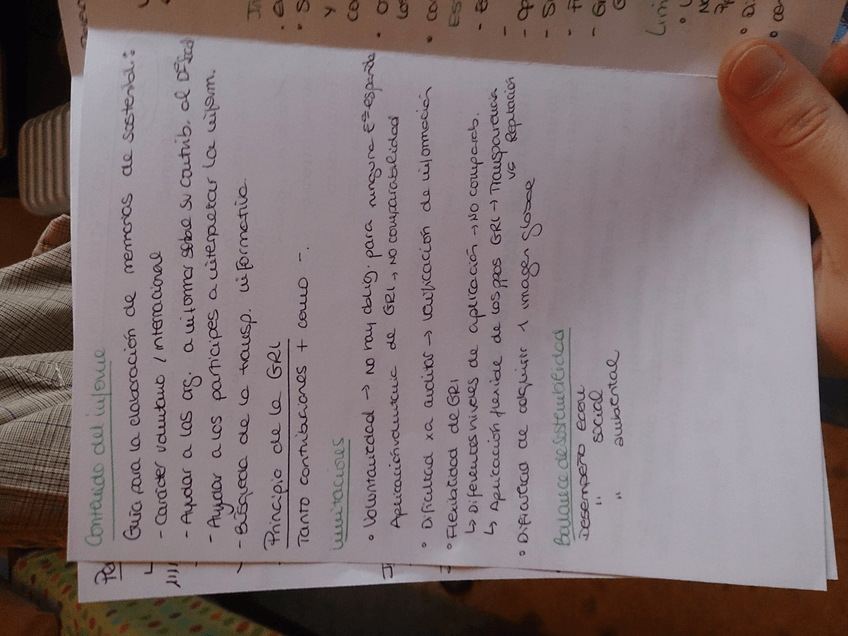 Contenido del informe
Guía para la elaboración de memorias de sostenibil.:
- Carácter voluntario / internacional
- Ayudar a las org. a informar sobre su contrib. al Dº
- Ayudar a los partícipes a interpretar la inform.
- Búsqueda de la transp. informativa.
Principio de la GRI
Tanto contribuciones + como -.
Limitaciones
• Voluntariedad → No hay oblig. para ninguna Eª española
Aplicación voluntaria de GRI → NO comparabilidad
• Dificultad xa auditar → verificación de información
• Flexibilidad de GRI
↳ Diferentes niveles de aplicación → NO comparab.
↳ Aplicación flexible de los ppos GRI → Transparencia
vs Reputación
• Dificultad de adquirir 1 imagen global
Balance de sostenibilidad
Desempeño econ
" social
" ambiental